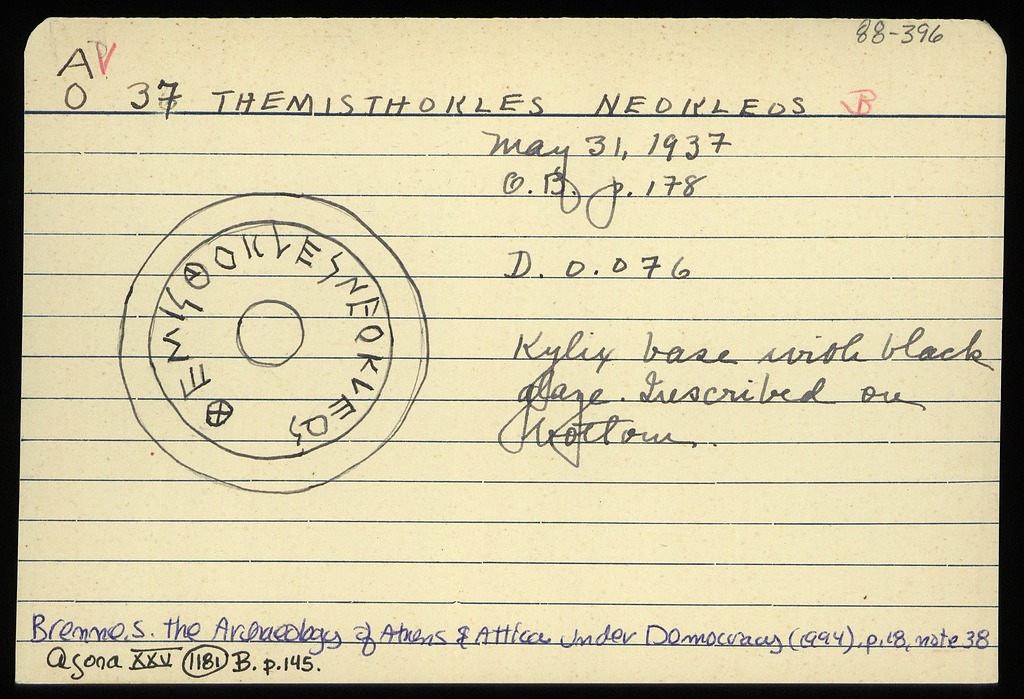 88-396
AP
O 37 THEMISTHOKLES NEOKLEOS B
May 31, 1937
O.B. p. 178
D. 0.076
Kylix base with black
glaze. Inscribed on
bottom.
ΘΕΜΙΣΘΟΚLΕΣΝΕΟΚLΕΟΣ
Brenne, S. The Archaeology of Athens & Attica under Democracy (1994), p.18, note 38
Agora XXV 1181 B. p.145.